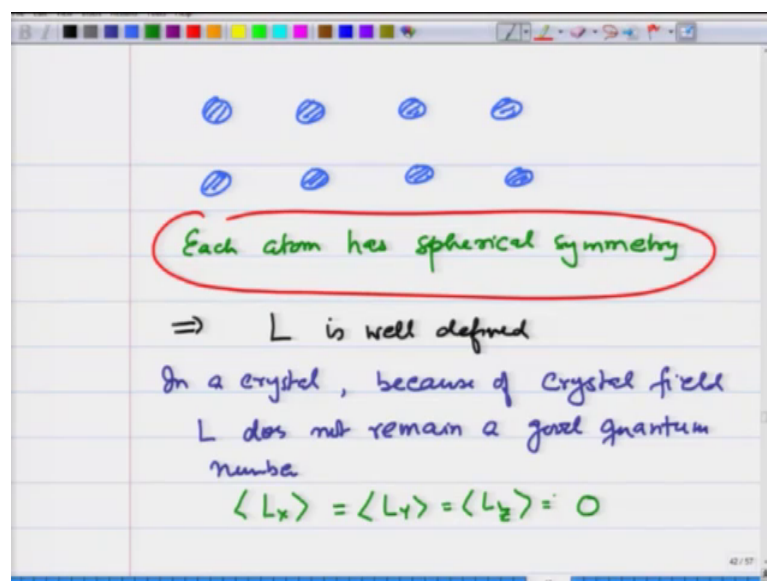 Each atom has spherical symmetry
⇒ L is well defined
In a crystal, because of crystal field
L does not remain a good quantum
number
⟨Lx⟩ = ⟨Ly⟩ = ⟨Lz⟩ = 0
42/57